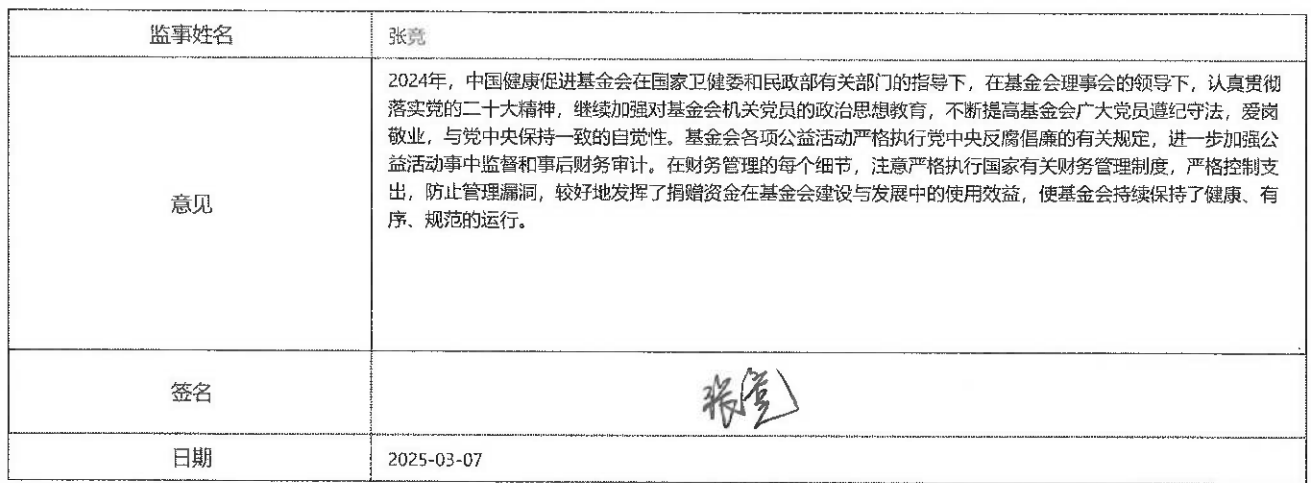 监事姓名 张竞
意见
2024年，中国健康促进基金会在国家卫健委和民政部有关部门的指导下，在基金会理事会的领导下，认真贯彻
落实党的二十大精神，继续加强对基金会机关党员的政治思想教育，不断提高基金会广大党员遵纪守法，爱岗
敬业，与党中央保持一致的自觉性。基金会各项公益活动严格执行党中央反腐倡廉的有关规定，进一步加强公
益活动事中监督和事后财务审计。在财务管理的每个细节，注意严格执行国家有关财务管理制度，严格控制支
出，防止管理漏洞，较好地发挥了捐赠资金在基金会建设与发展中的使用效益，使基金会持续保持了健康、有
序、规范的运行。
签名 张竞
日期 2025-03-07